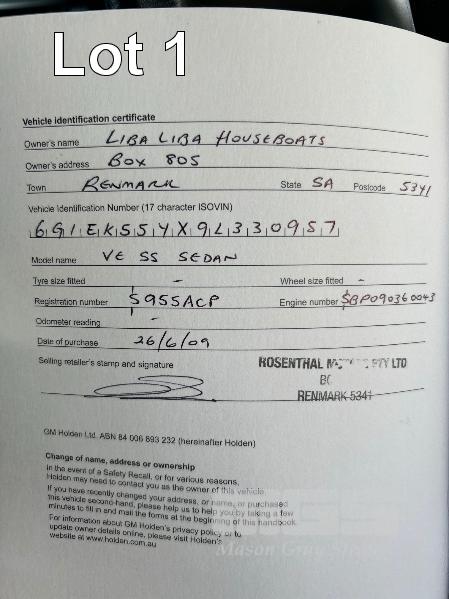 Lot 1
Vehicle identification certificate
Owner's name LIBA LIBA HOUSEBOATS
Owner's address BOX 805
Town RENMARK State SA Postcode 5341
Vehicle Identification Number (17 character ISOVIN)
6G1EK55YX9L330957
Model name VE SS SEDAN
Tyre size fitted - Wheel size fitted -
Registration number S955ACP Engine number $BP090360043
Odometer reading -
Date of purchase 26/6/09
Selling retailer's stamp and signature ROSENTHAL PTY LTD
RENMARK 5341
GM Holden Ltd. ABN 84 006 893 232 (hereinafter Holden)
Change of name, address or ownership
In the event of a Safety Recall, or for various reasons,
Holden may need to contact you as the owner of this vehicle.
If you have recently changed your address, or name, or purchased
this vehicle second-hand, please help us to help you by taking a few
minutes to fill in and mail the forms at the beginning of this handbook.
For information about GM Holden's privacy policy or to
update owner details online, please visit Holden's
website at www.holden.com.au
Mason Gray